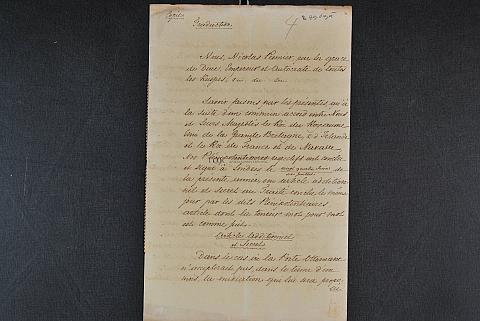 Copie.
Traduction.
4
Nous, Nicolas Premier, par la grace
de Dieu, Empereur et Autocrate de toutes
les Russies,
Savoir faisons par les presentes qu'à
la suite d'un commun accord entre Nous
et Leurs Majestés le Roi du Royaume
Uni de la Grande Bretagne, & d'Irlande
et le Roi de France et de Navarre
Nos Plénipotentiaires respectifs ont conclu
et signé à Londres le
de la presente année, un article addition-
nel et secret au Traité conclu le même
jour par les dits Plénipotentiaires
article dont la teneur mot pour mot
est comme suit:
Article additionnel
et Secret.
Dans le cas où la Porte Ottomane
n'accepterait pas, dans le terme d'un
mois, la médiation que lui sera propo-
sée